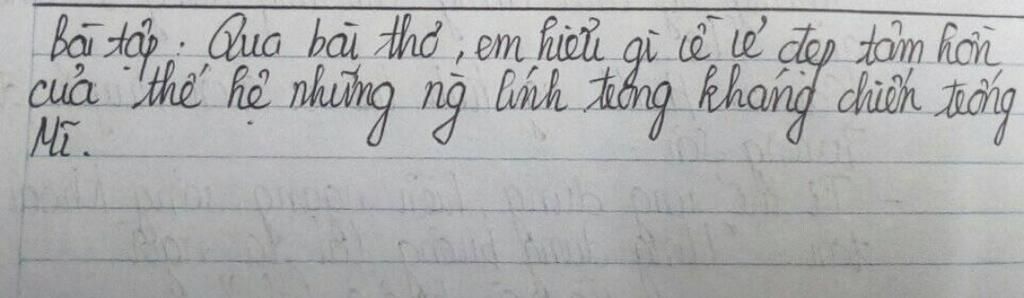 Bài tập: Qua bài thơ, em hiểu gì về vẻ đẹp tâm hồn
của thế hệ những ng lính trong kháng chiến chống
Mĩ.